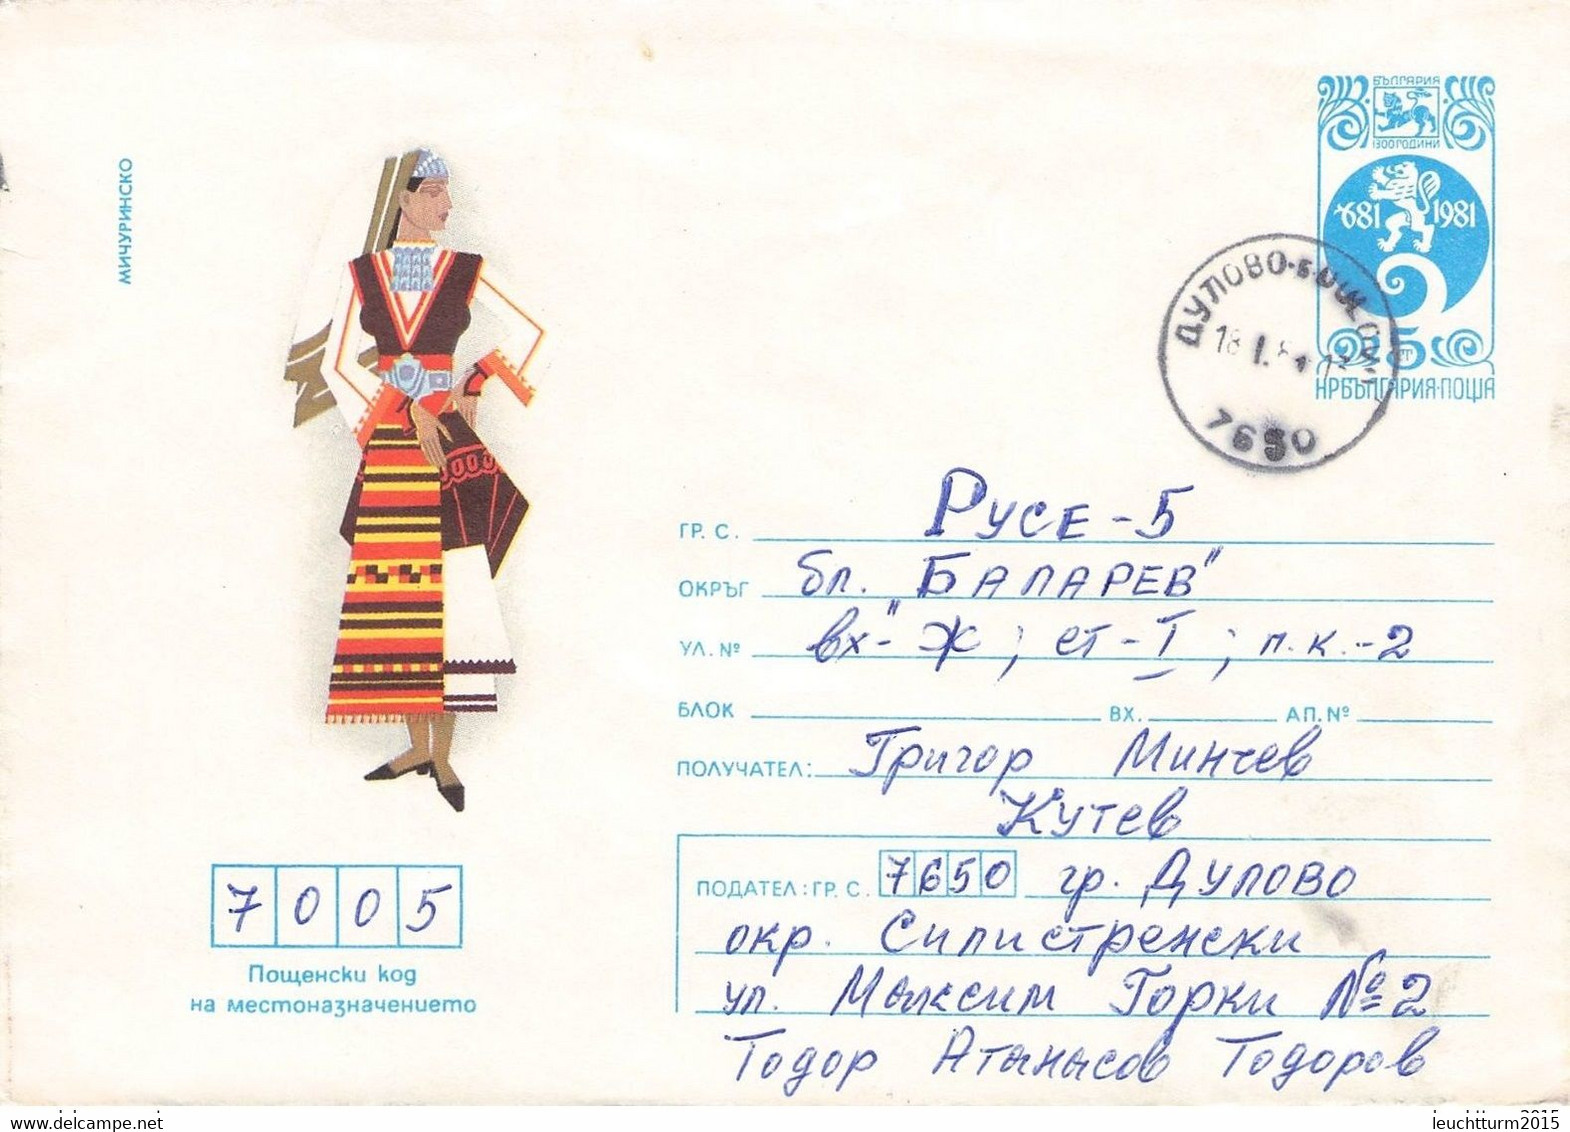 МИЧУРИНСКО
БЪЛГАРИЯ
1300 ГОДИНИ
681 1981
5 СТ
НР БЪЛГАРИЯ·ПОЩА
ДУЛОВО
18 I.
7650
ГР. С. РУСЕ-5
ОКРЪГ бл. "БАЛАРЕВ"
УЛ. № вх-"Ж; ет-I; п.к.-2
БЛОК ВХ. АП. №
ПОЛУЧАТЕЛ: Григор Минчев
Кутев
ПОДАТЕЛ: ГР. С. 7650 гр. Дулово
окр. Силистренски
ул. Максим Горки №2
Тодор Атанасов Тодоров
7005
Пощенски код
на местоназначението
www.delcampe.net
leuchtturm2015